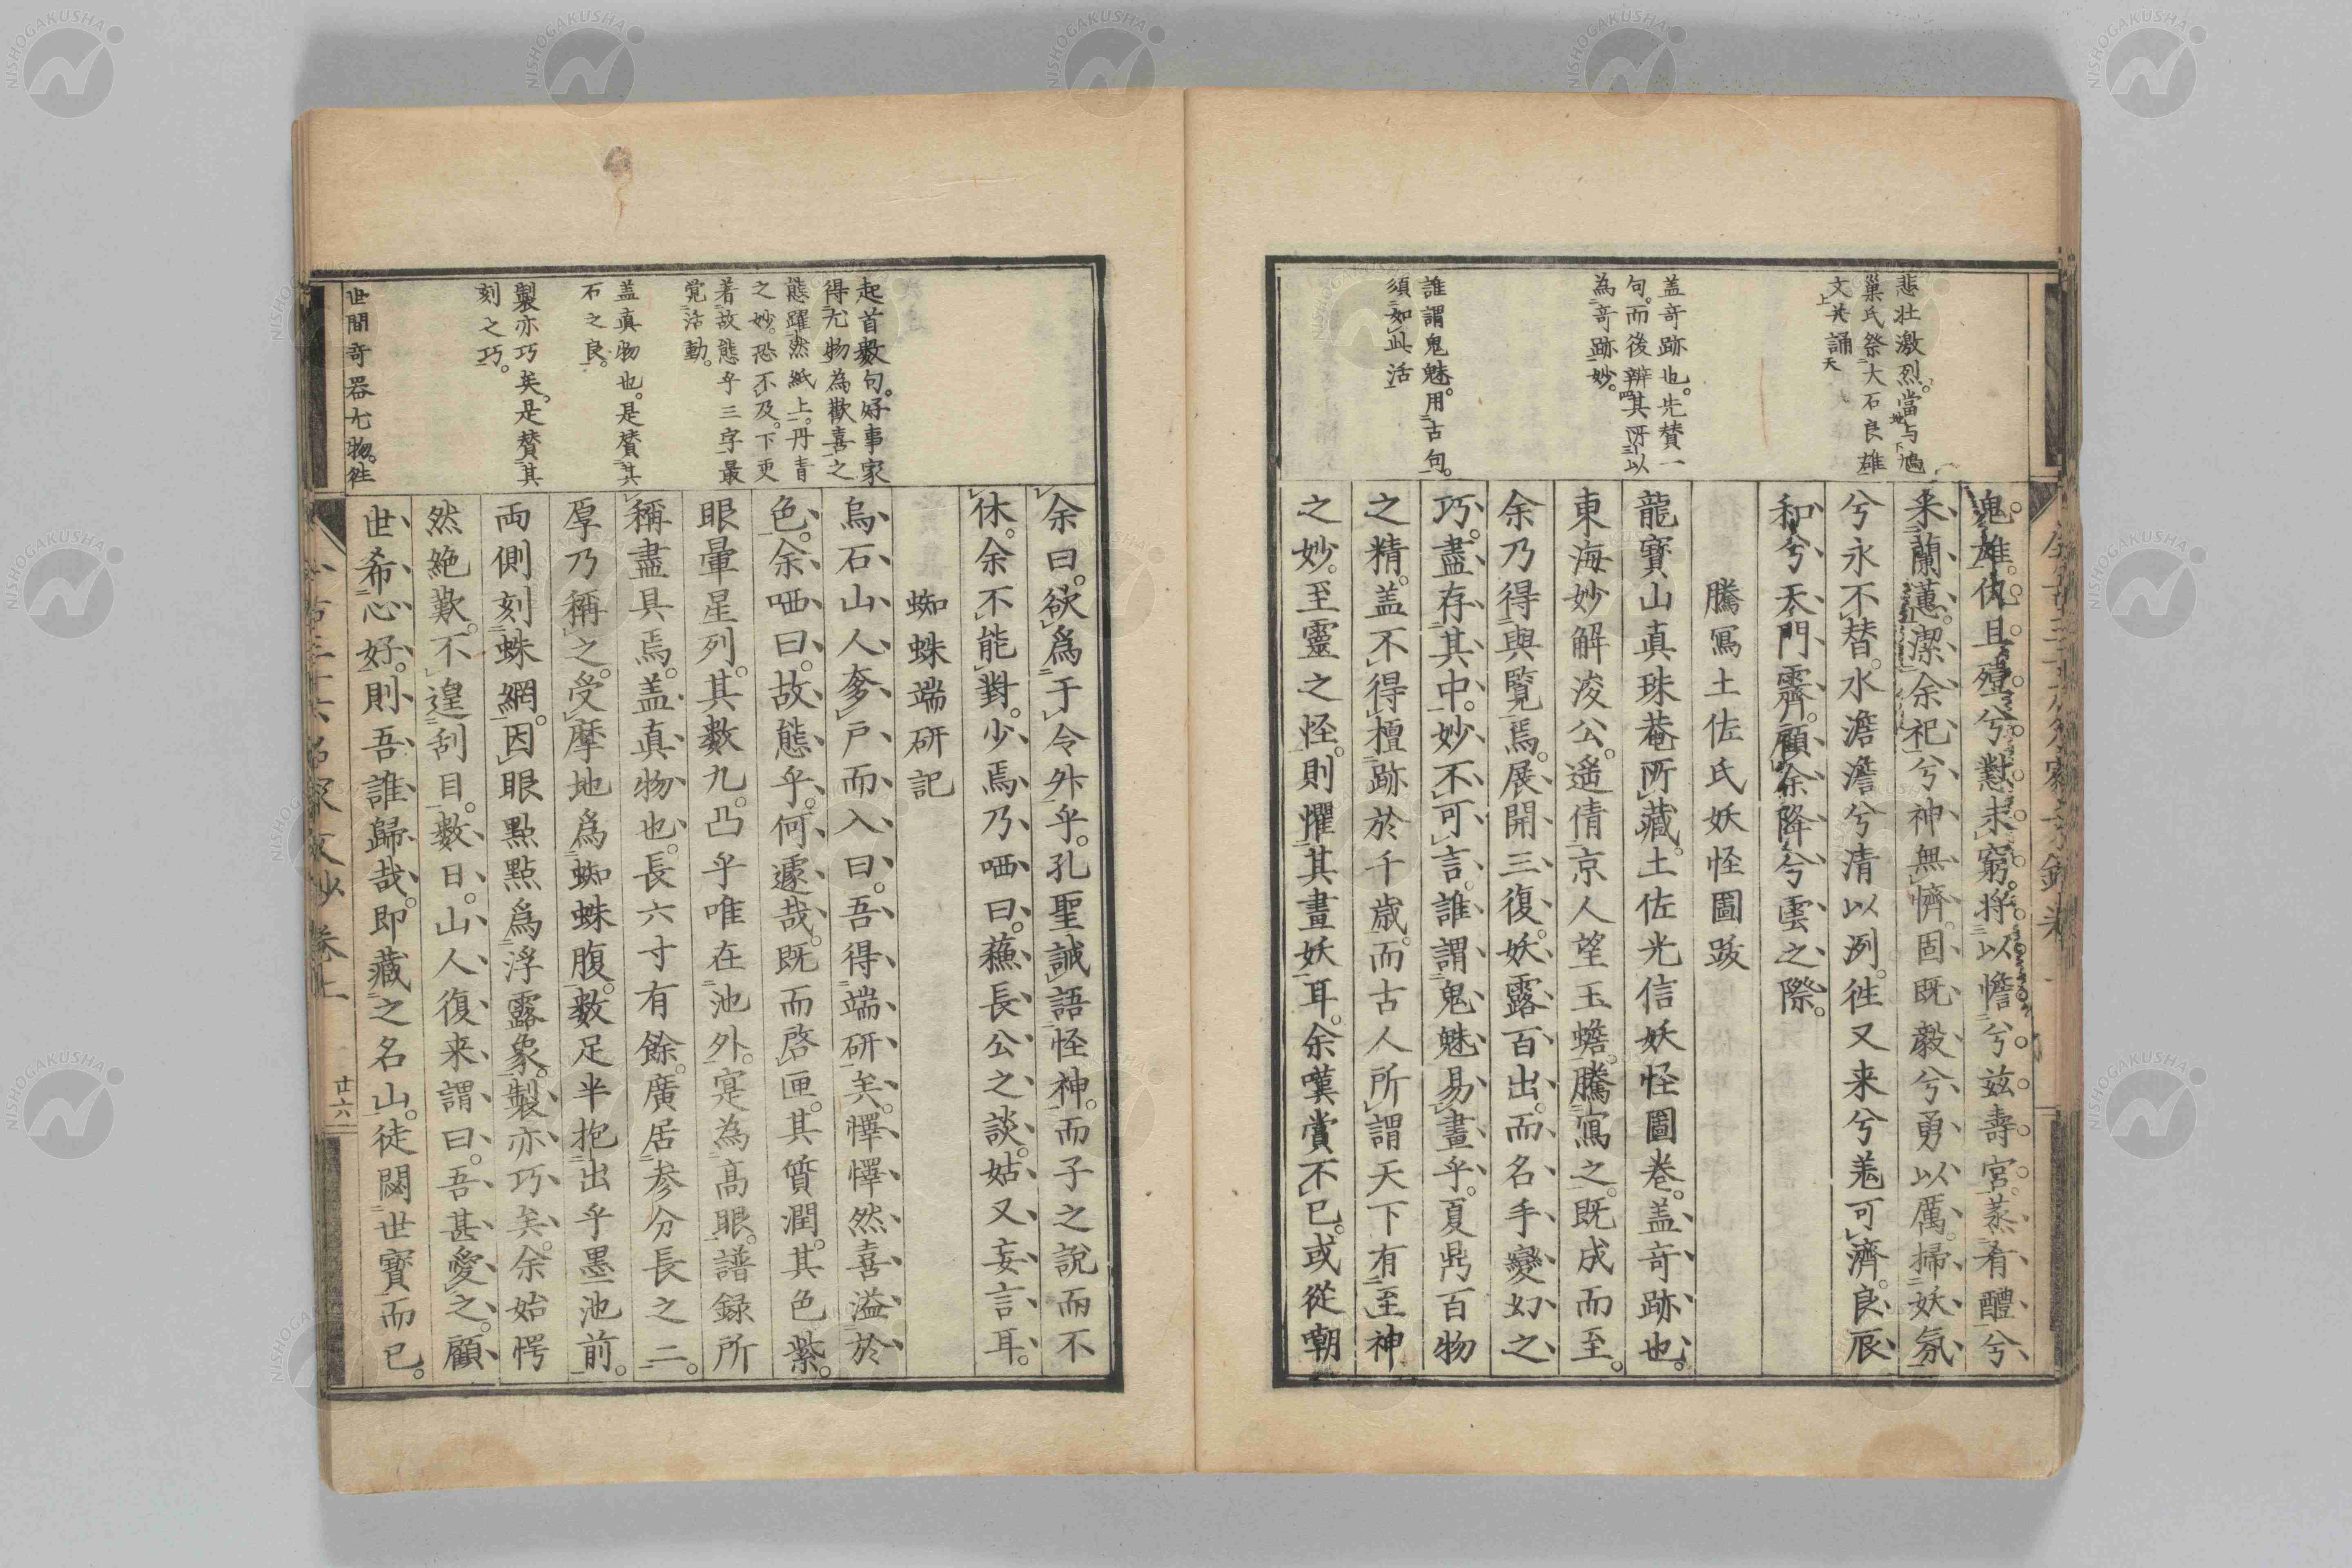 悲壯激烈。當与鳩
巢氏祭大石良雄
文共誦
盖奇跡也。先賛一
句。而後辨其所以
為奇跡妙。
誰謂鬼魅。用古句。
須如此活
鬼雄。仇且殪兮。懟未窮。將以憺兮。玆壽宮。蒸肴醴兮
来蘭蕙。潔余祀兮神無懠。固既毅兮勇以厲。掃妖氛
兮永不替。水澹澹兮清以洌。徃又来兮羗可濟。良辰
和兮天門霽。顧余降兮雲之際。
騰寫土佐氏妖怪圖跋
龍寶山真珠菴所藏。土佐光信妖怪圖巻。盖奇跡也。
東海妙解淩公。遥倩京人望玉蟾。騰寫之。既成而至。
余乃得與覧焉。展開三復。妖露百出。而名手變幻之
巧。盡存其中。妙不可言。誰謂鬼魅易畫乎。夏鼎百物
之精。盖不得檀跡於千歳。而古人所謂天下有至神
之妙。至靈之怪。則懼其畫妖耳。余嘆賞不已。或従嘲
起首數句。好事家
得尤物為歡喜之
態躍然紙上。丹青
之妙。恐不及。下更
着故態乎三字最
覚活動。
盖真物也。是賛其
石之良。
製亦巧矣。是賛其
刻之巧。
世間奇器尤物。徃
余曰。欲爲于令外乎。孔聖誡語怪神。而子之說而不
休。余不能對。少焉乃哂曰。蘓長公之談。姑又妄言耳。
蜘蛛端研記
烏石山人夛戶而入曰。吾得端研矣。懌懌然喜溢於
色。余哂曰。故態乎。何遽哉。既而啓匣。其質潤。其色紫。
眼暈星列。其數九。凸乎唯在池外。寔為髙眼。譜録所
稱盡具焉。盖真物也。長六寸有餘。廣居参分長之二。
厚乃稱之。受摩地爲蜘蛛腹。數足半抱出乎墨池前。
両側刻蛛網。因眼點點爲浮露象。製亦巧矣。余始愕
然絶歎。不遑刮目。數日。山人復来謂曰。吾甚愛之。顧
世希心好。則吾誰歸哉。即藏之名山。徒閟世寳而已。
廿六